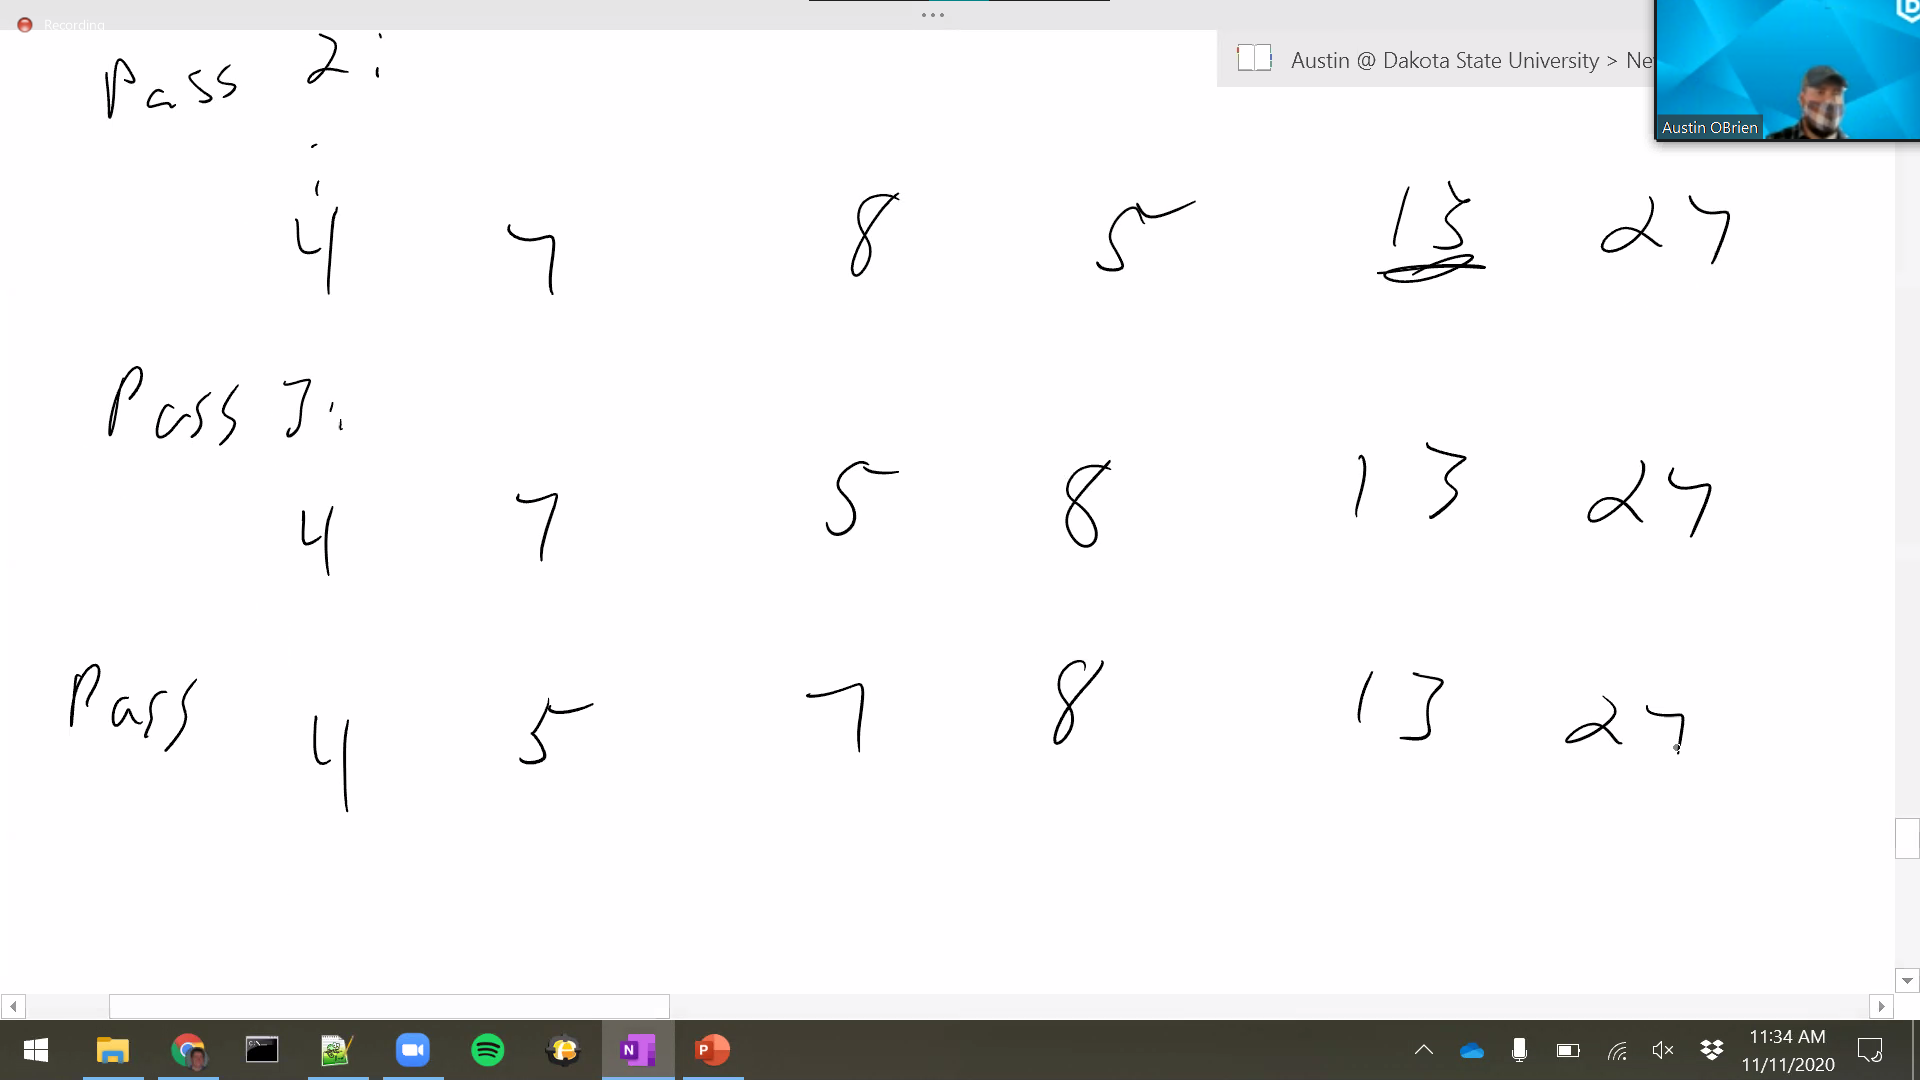 Recording
Austin @ Dakota State University > Ne
Austin OBrien
Pass 2:
4 7 8 5 13 27
Pass 3:
4 7 5 8 13 27
Pass
4 5 7 8 13 27
11:34 AM
11/11/2020